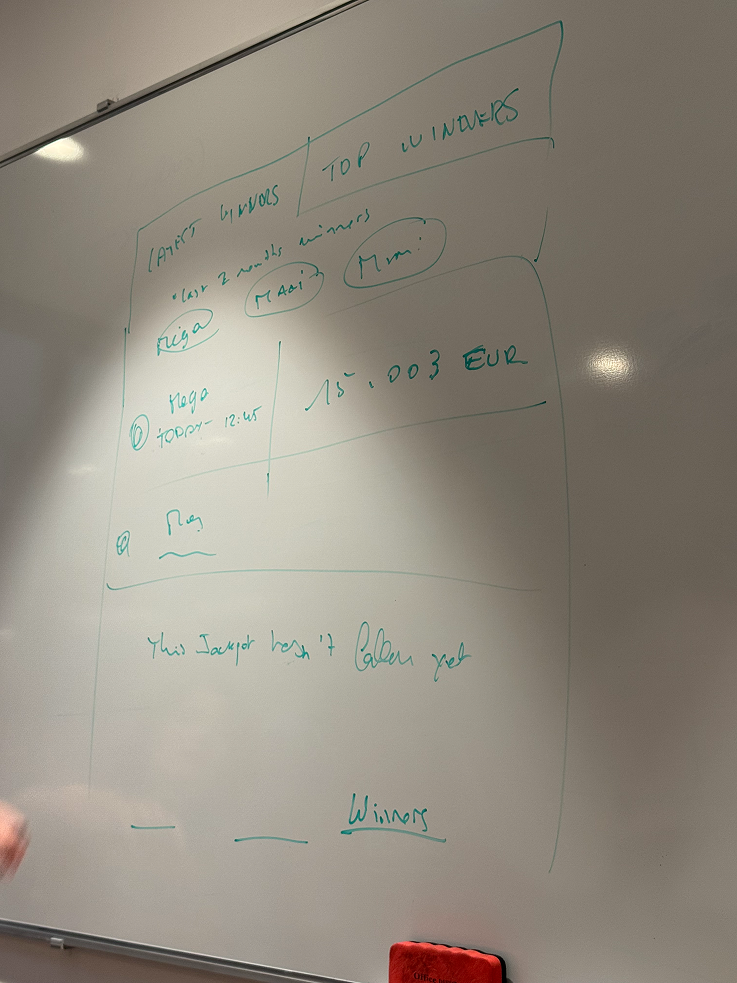 LATEST WINNERS
TOP WINNERS
*last 2 months winners
Mega
Maxi
Mini
Mega
TODAY - 12:45
15.003 EUR
Meg
This Jackpot hasn't fallen yet
Winners
Office